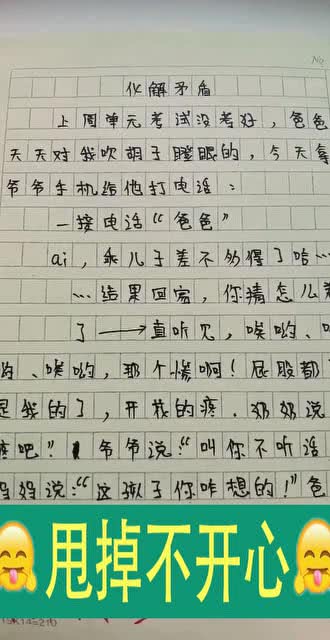 No
化解矛盾
上周单元考试没考好，爸爸
天天对我吹胡子瞪眼的，今天拿
爷爷手机给他打电话：
一接电话“爸爸”
ai，乖儿子差不多得了哈…
…结果回家，你猜怎么着
了——→直听见，唉哟、
哟、唉哟，那个惨啊！屁股都
是我的了，开花的疼．奶奶说
疼吧”爷爷说：“叫你不听话
妈妈说：“这孩子你咋想的！”爸
甩掉不开心